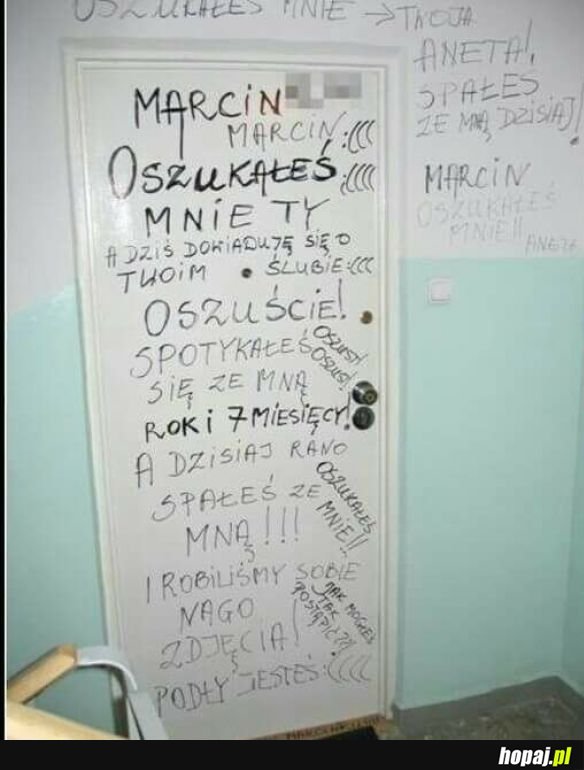 OSZUKAŁEŚ MNIE → TWOJA
ANETA!
SPAŁEŚ
ZE MNĄ DZISIAJ!
MARCIN
OSZUKAŁEŚ
MNIE!!
MARCIN
MARCIN :(((
OSZUKAŁEŚ :(((
MNIE TY
A DZIŚ DOWIADUJĘ SIĘ O
TWOIM ŚLUBIE :(((
OSZUŚCIE!
SPOTYKAŁEŚ
SIĘ ZE MNĄ
OSZUST!
OSZUST!
ROK i 7 MIESIĘCY!
A DZISIAJ RANO
SPAŁEŚ ZE
MNĄ!!!
OSZUKAŁEŚ
MNIE!!
I ROBILIŚMY SOBIE
NAGO
ZDJĘCIA!
JAK MOGŁEŚ
TAK
POSTĄPIĆ??!
PODŁY JESTEŚ :((((
hopaj.pl